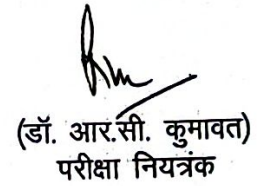 (डॉ. आर.सी. कुमावत)
परीक्षा नियत्रंक